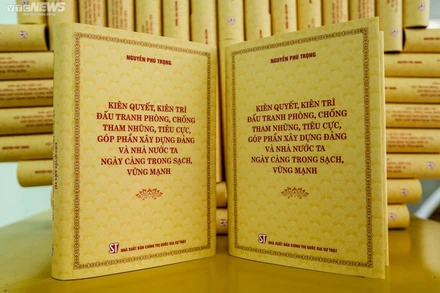 VTC NEWS
NGUYỄN PHÚ TRỌNG
KIÊN QUYẾT, KIÊN TRÌ
ĐẤU TRANH PHÒNG, CHỐNG
THAM NHŨNG, TIÊU CỰC,
GÓP PHẦN XÂY DỰNG ĐẢNG
VÀ NHÀ NƯỚC TA
NGÀY CÀNG TRONG SẠCH,
VỮNG MẠNH
ST NHÀ XUẤT BẢN CHÍNH TRỊ QUỐC GIA SỰ THẬT
NGUYỄN PHÚ TRỌNG
KIÊN QUYẾT, KIÊN TRÌ
ĐẤU TRANH PHÒNG, CHỐNG
THAM NHŨNG, TIÊU CỰC,
GÓP PHẦN XÂY DỰNG ĐẢNG
VÀ NHÀ NƯỚC TA
NGÀY CÀNG TRONG SẠCH,
VỮNG MẠNH
ST NHÀ XUẤT BẢN CHÍNH TRỊ QUỐC GIA SỰ THẬT